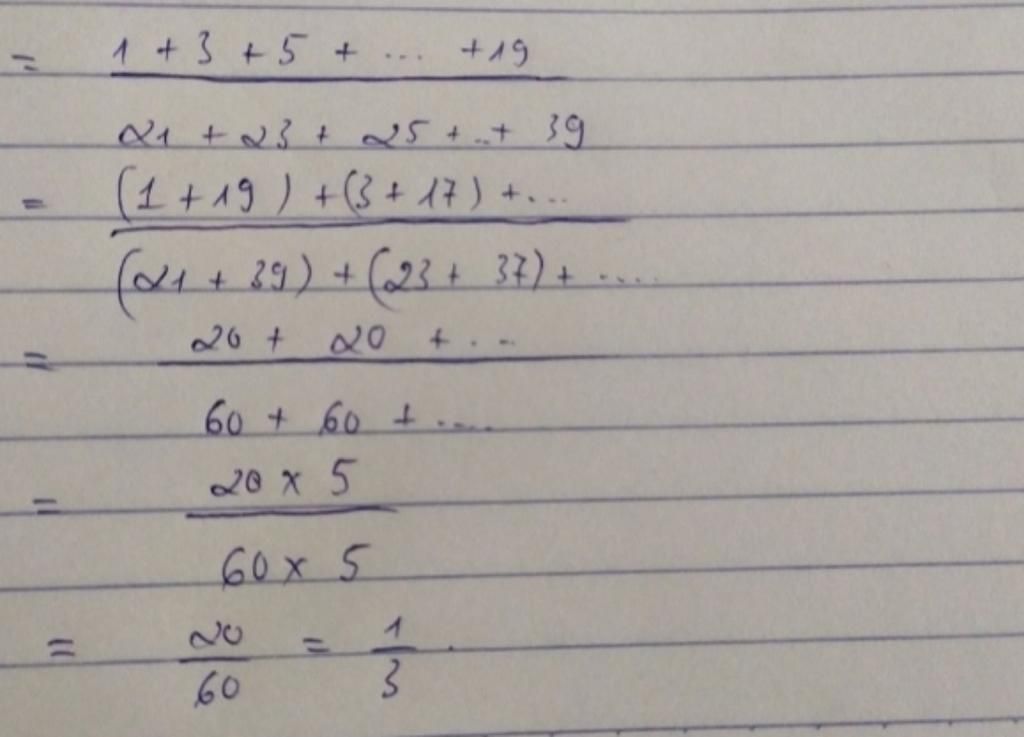 = 1 + 3 + 5 + ... + 19
21 + 23 + 25 + .. + 39
= (1 + 19) + (3 + 17) + ...
(21 + 39) + (23 + 37) + ....
= 20 + 20 + ...
60 + 60 + ....
= 20 x 5
60 x 5
= 20/60 = 1/3 .